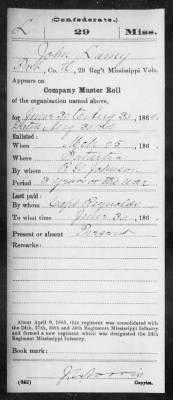 (Confederate.)
L 29 Miss.
John Laney
Pvt, Co. K, 29 Reg't Mississippi Vols.
Appears on
Company Muster Roll
of the organization named above,
for June 30 to Aug 30, 186
Enlisted:
When Mch 25, 186
Where
By whom Johnson
Period 3 years or the war
Last paid:
By whom Capt Reynolds
To what time June 30, 186
Present or absent Present
Remarks:
About April 9, 1865, this regiment was consolidated with
the 24th, 27th, 30th and 34th Regiments Mississippi Infantry
and formed a new regiment which was designated the 24th
Regiment Mississippi Infantry.
Book mark:
(642)
Copyist.